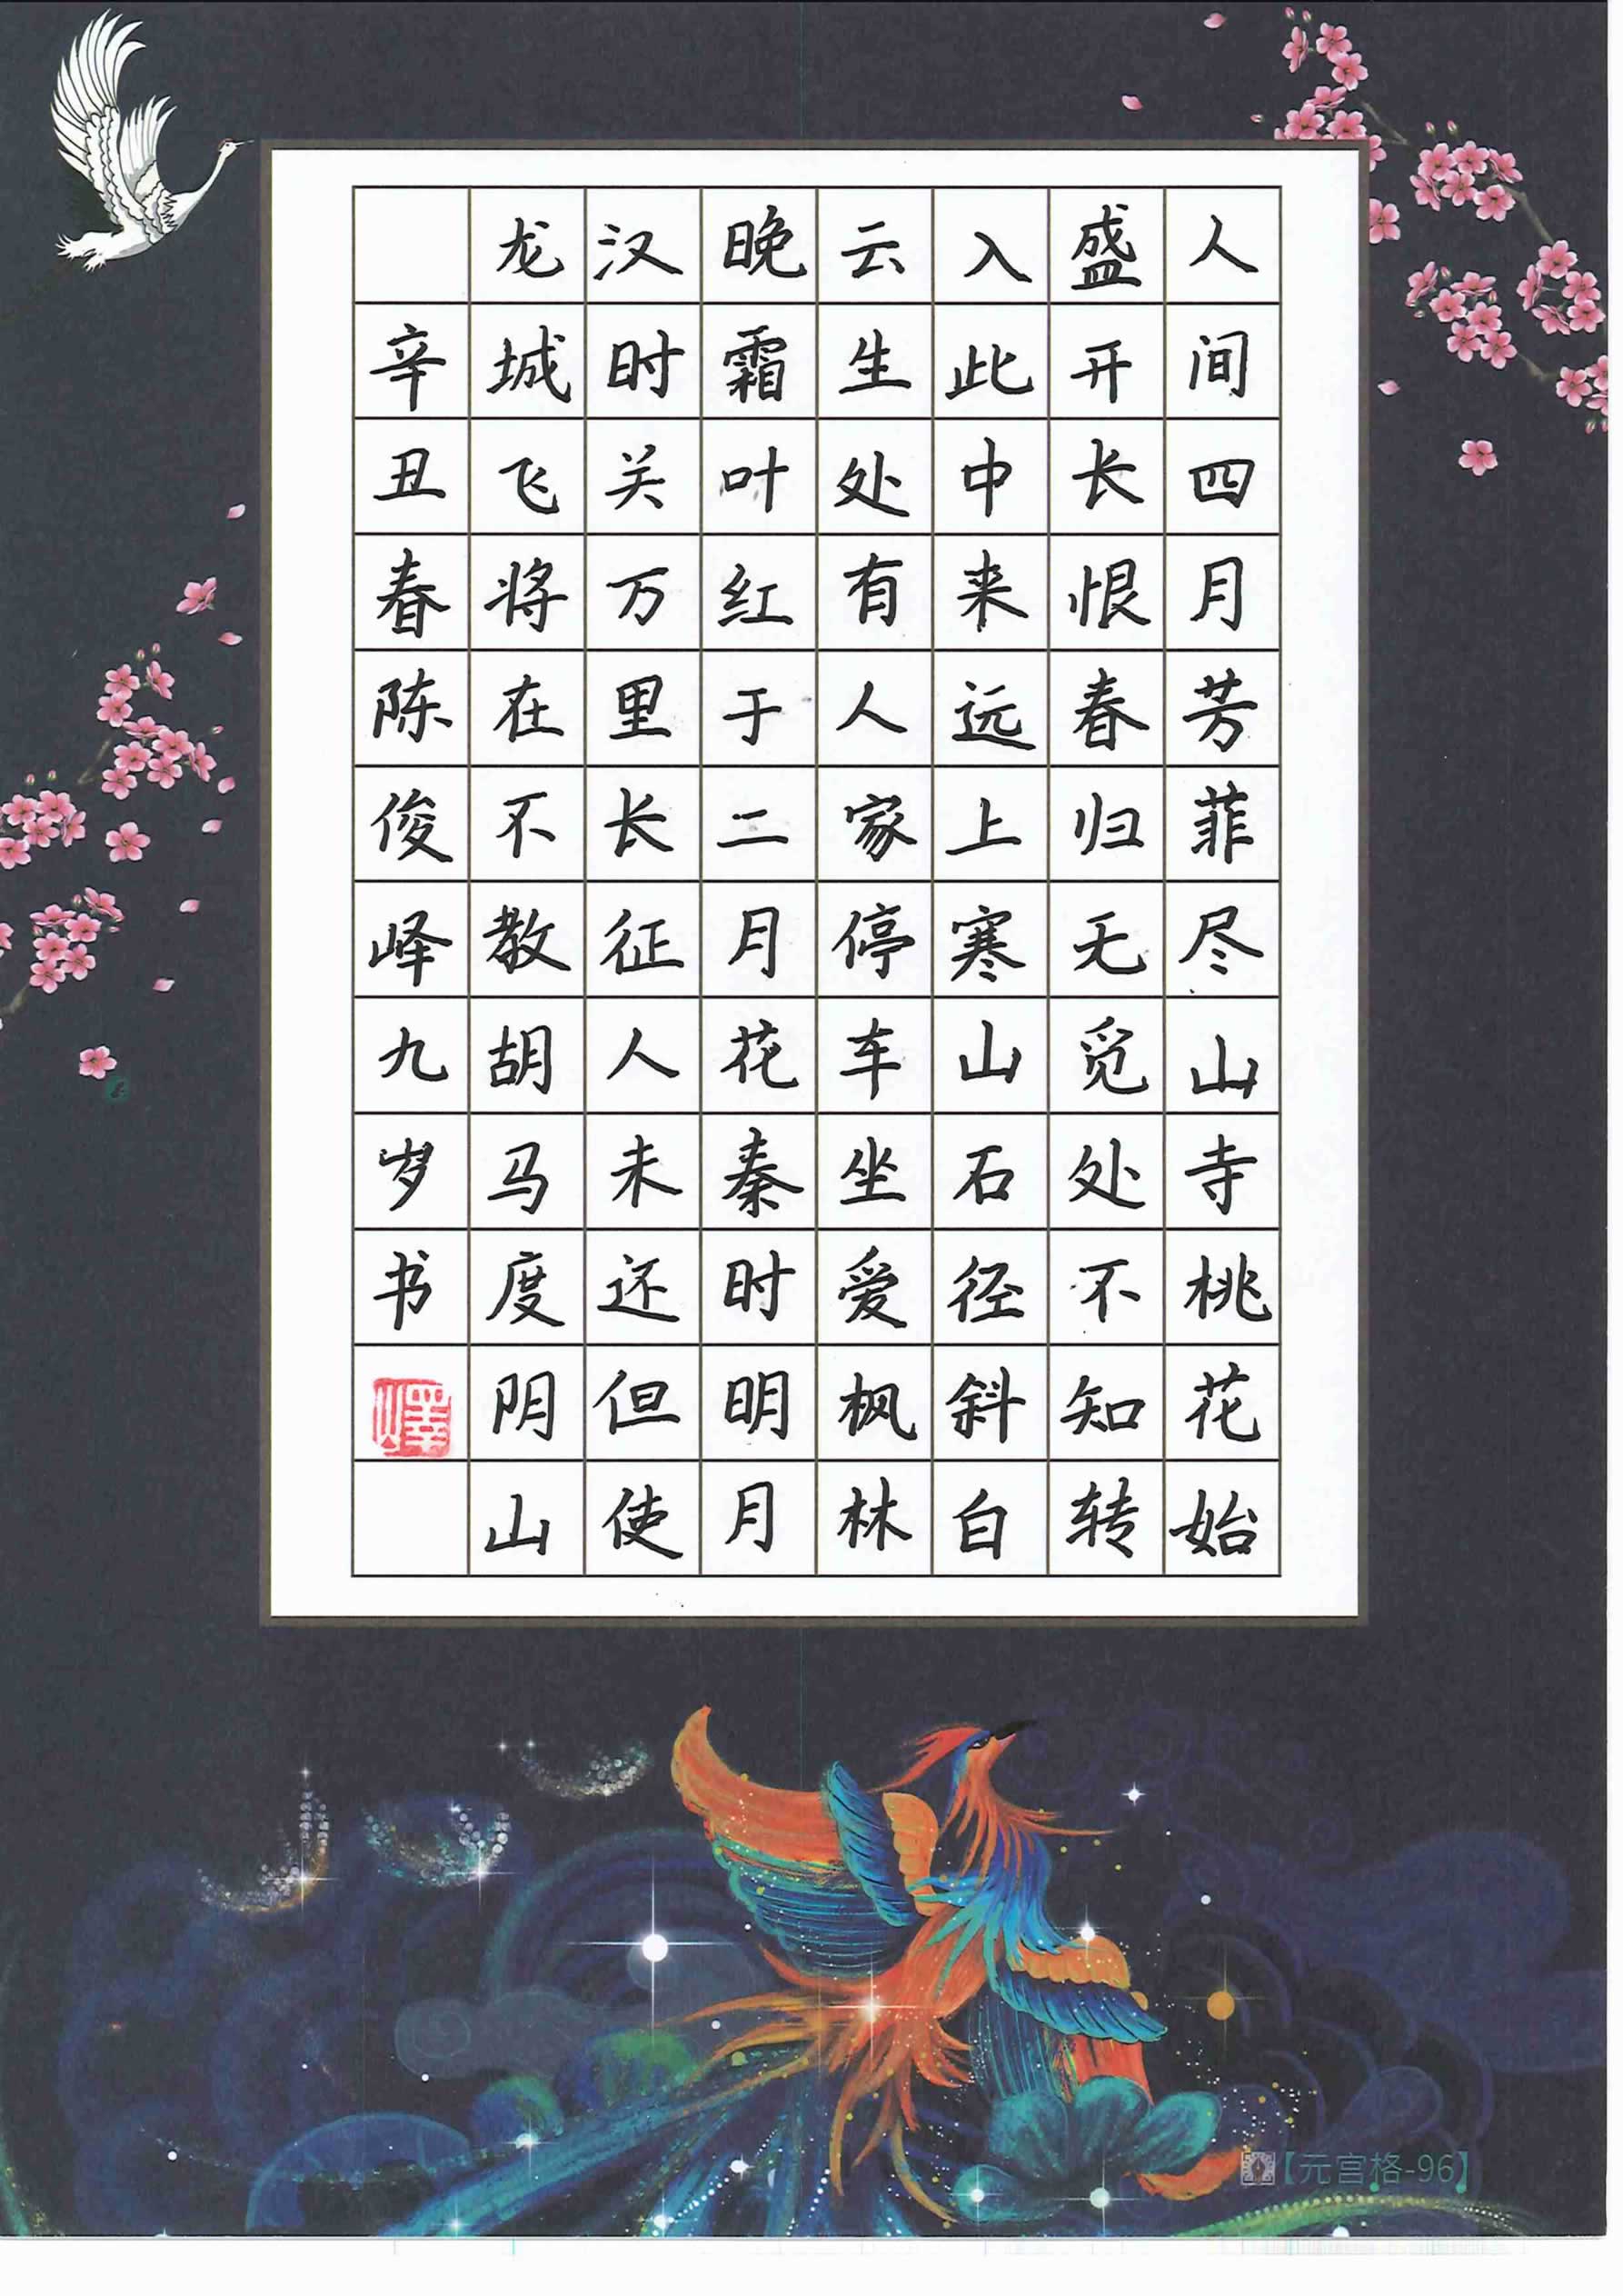 人间四月芳菲尽山寺桃花始
盛开长恨春归无觅处不知转
入此中来远上寒山石径斜白
云生处有人家停车坐爱枫林
晚霜叶红于二月花秦时明月
汉时关万里长征人未还但使
龙城飞将在不教胡马度阴山
辛丑春陈俊峄九岁书
峄
【元宫格-96】